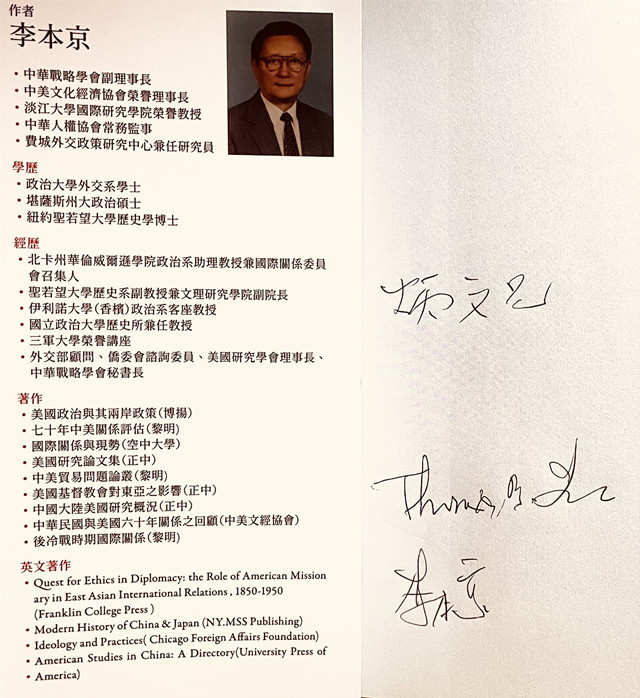 作者
李本京
• 中華戰略學會副理事長
• 中美文化經濟協會榮譽理事長
• 淡江大學國際研究學院榮譽教授
• 中華人權協會常務監事
• 費城外交政策研究中心兼任研究員
學歷
• 政治大學外交系學士
• 堪薩斯州大政治碩士
• 紐約聖若望大學歷史學博士
經歷
• 北卡州華倫威爾遜學院政治系助理教授兼國際關係委員
會召集人
• 聖若望大學歷史系副教授兼文理研究學院副院長
• 伊利諾大學(香檳)政治系客座教授
• 國立政治大學歷史所兼任教授
• 三軍大學榮譽講座
• 外交部顧問、僑委會諮詢委員、美國研究學會理事長、
中華戰略學會秘書長
著作
• 美國政治與其兩岸政策(博揚)
• 七十年中美關係評估(黎明)
• 國際關係與現勢(空中大學)
• 美國研究論文集(正中)
• 中美貿易問題論叢(黎明)
• 美國基督教會對東亞之影響(正中)
• 中國大陸美國研究概況(正中)
• 中華民國與美國六十年關係之回顧(中美文經協會)
• 後冷戰時期國際關係(黎明)
英文著作
• Quest for Ethics in Diplomacy: the Role of American Mission
ary in East Asian International Relations , 1850-1950
(Franklin College Press )
• Modern History of China & Japan (NY.MSS Publishing)
• Ideology and Practices( Chicago Foreign Affairs Foundation)
• American Studies in China: A Directory(University Press of
• America)
炳文兄
Thomas B. Lee
李本京